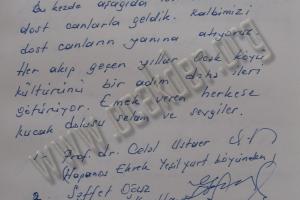 Bu kezde aşağıda
dost canlarla geldik. Kalbimizi
dost canların yanına atıyoruz.
Her akıp geçen yıllar Ocak köyü
kültürünü bir adım daha ileri
götürüyor. Emek veren herkese
kucak dolusu selam ve sevgiler.
1- Prof. Dr. Celal
Ekrek Yeşilyurt köyünden
2. Saffet Oğuz